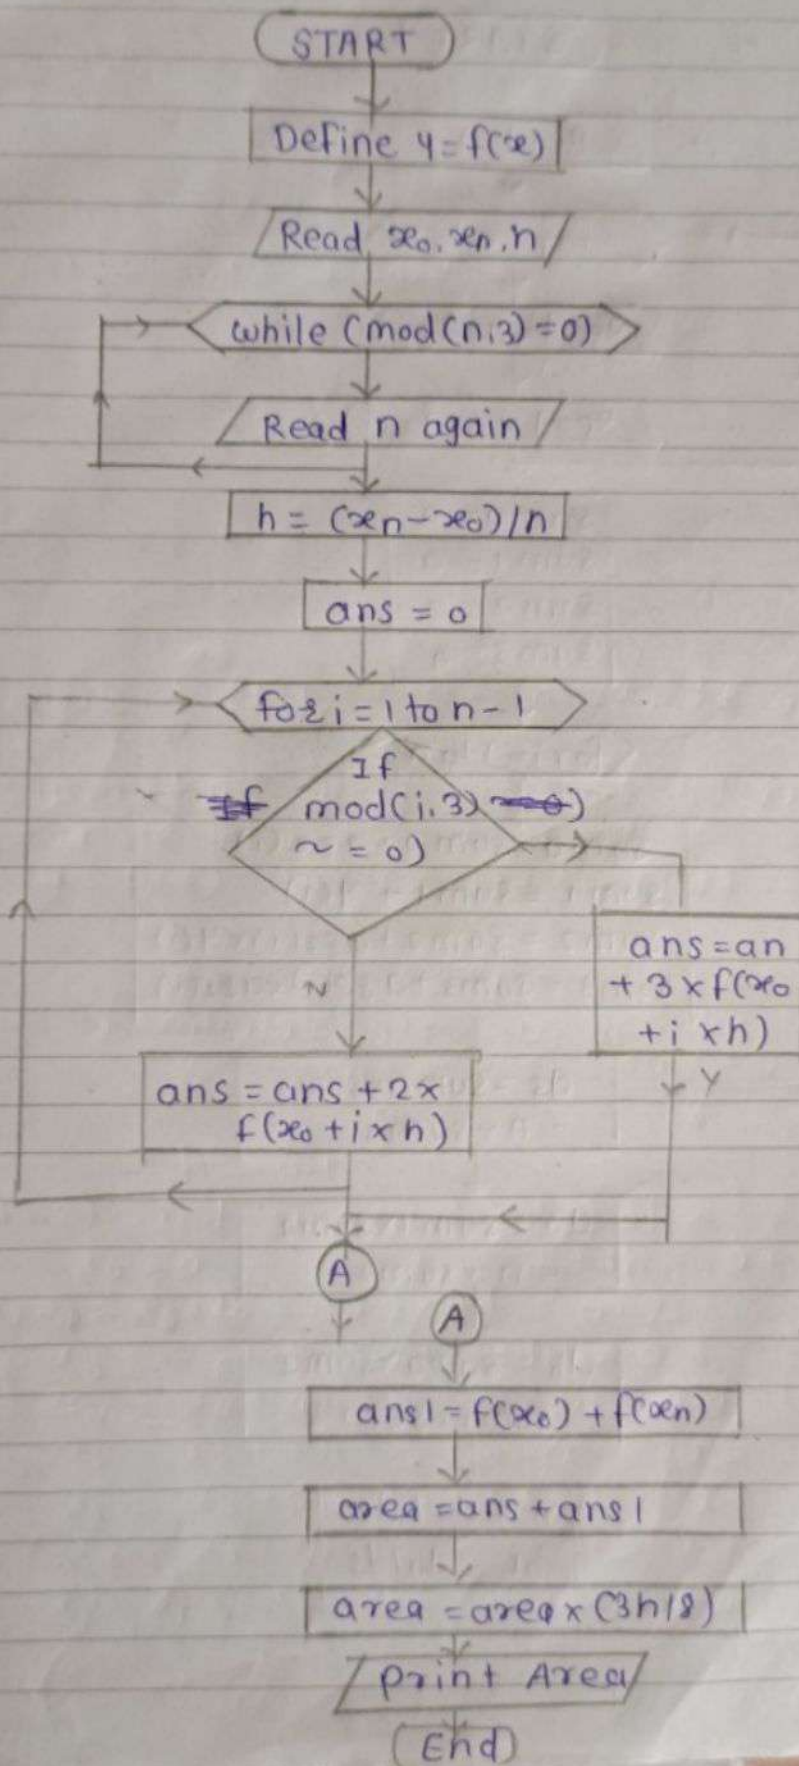 START
Define y=f(x)
Read x₀, xₙ, n
while (mod(n,3)=0)
Read n again
h = (xₙ-x₀)/n
ans = 0
for i = 1 to n-1
If
mod(i,3)
~ = 0)
ans = an
+ 3 x f(x₀
+i xh)
N
Y
ans = ans + 2x
f(x₀ + i x h)
A
A
ans1 = f(x₀) + f(xₙ)
area = ans + ans1
area = area x (3h/8)
Print Area
End